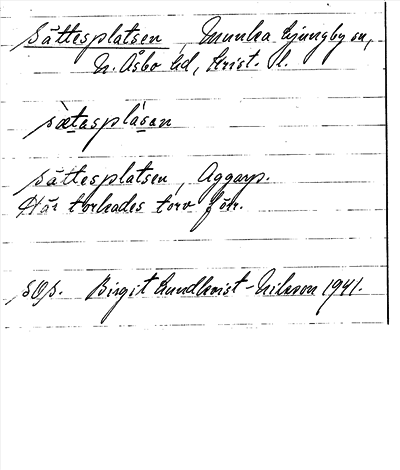 Sättesplatsen, Munka Ljungby sn,
N. Åsbo hd, Krist. l.
sètasplásan
Sättesplatsen, Aggarp.
Här torkades torv förr.
SOS. Birgit Lundkvist-Nilsson 1941.